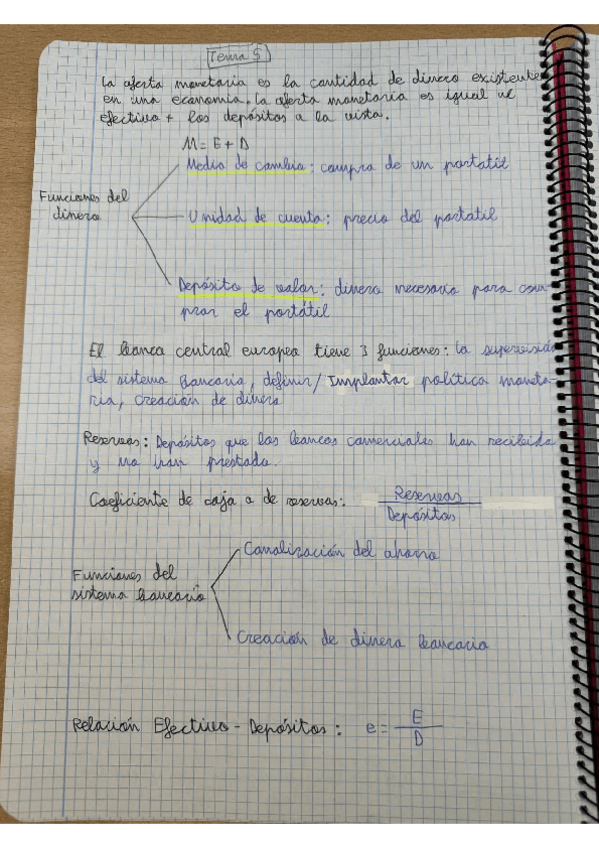 Tema 5
La oferta monetaria es la cantidad de dinero existente
en una economía. La oferta monetaria es igual al
efectivo + los depósitos a la vista.
M = E + D
Medio de cambio: compra de un portátil
Funciones del
dinero
Unidad de cuenta: precio del portátil
Depósito de valor: dinero necesario para com
prar el portátil
El banco central europeo tiene 3 funciones: la supervisión
del sistema Bancario, definir/Implantar política moneta-
ria, creación de dinero
Reservas: Depósitos que los bancos comerciales han recibido
y no han prestado.
Coeficiente de caja o de reservas: Reservas
Depósitos
Canalización del ahorro
Funciones del
sistema bancario
Creación de dinero bancario
Relación Efectivo - Depósitos: e = E
D